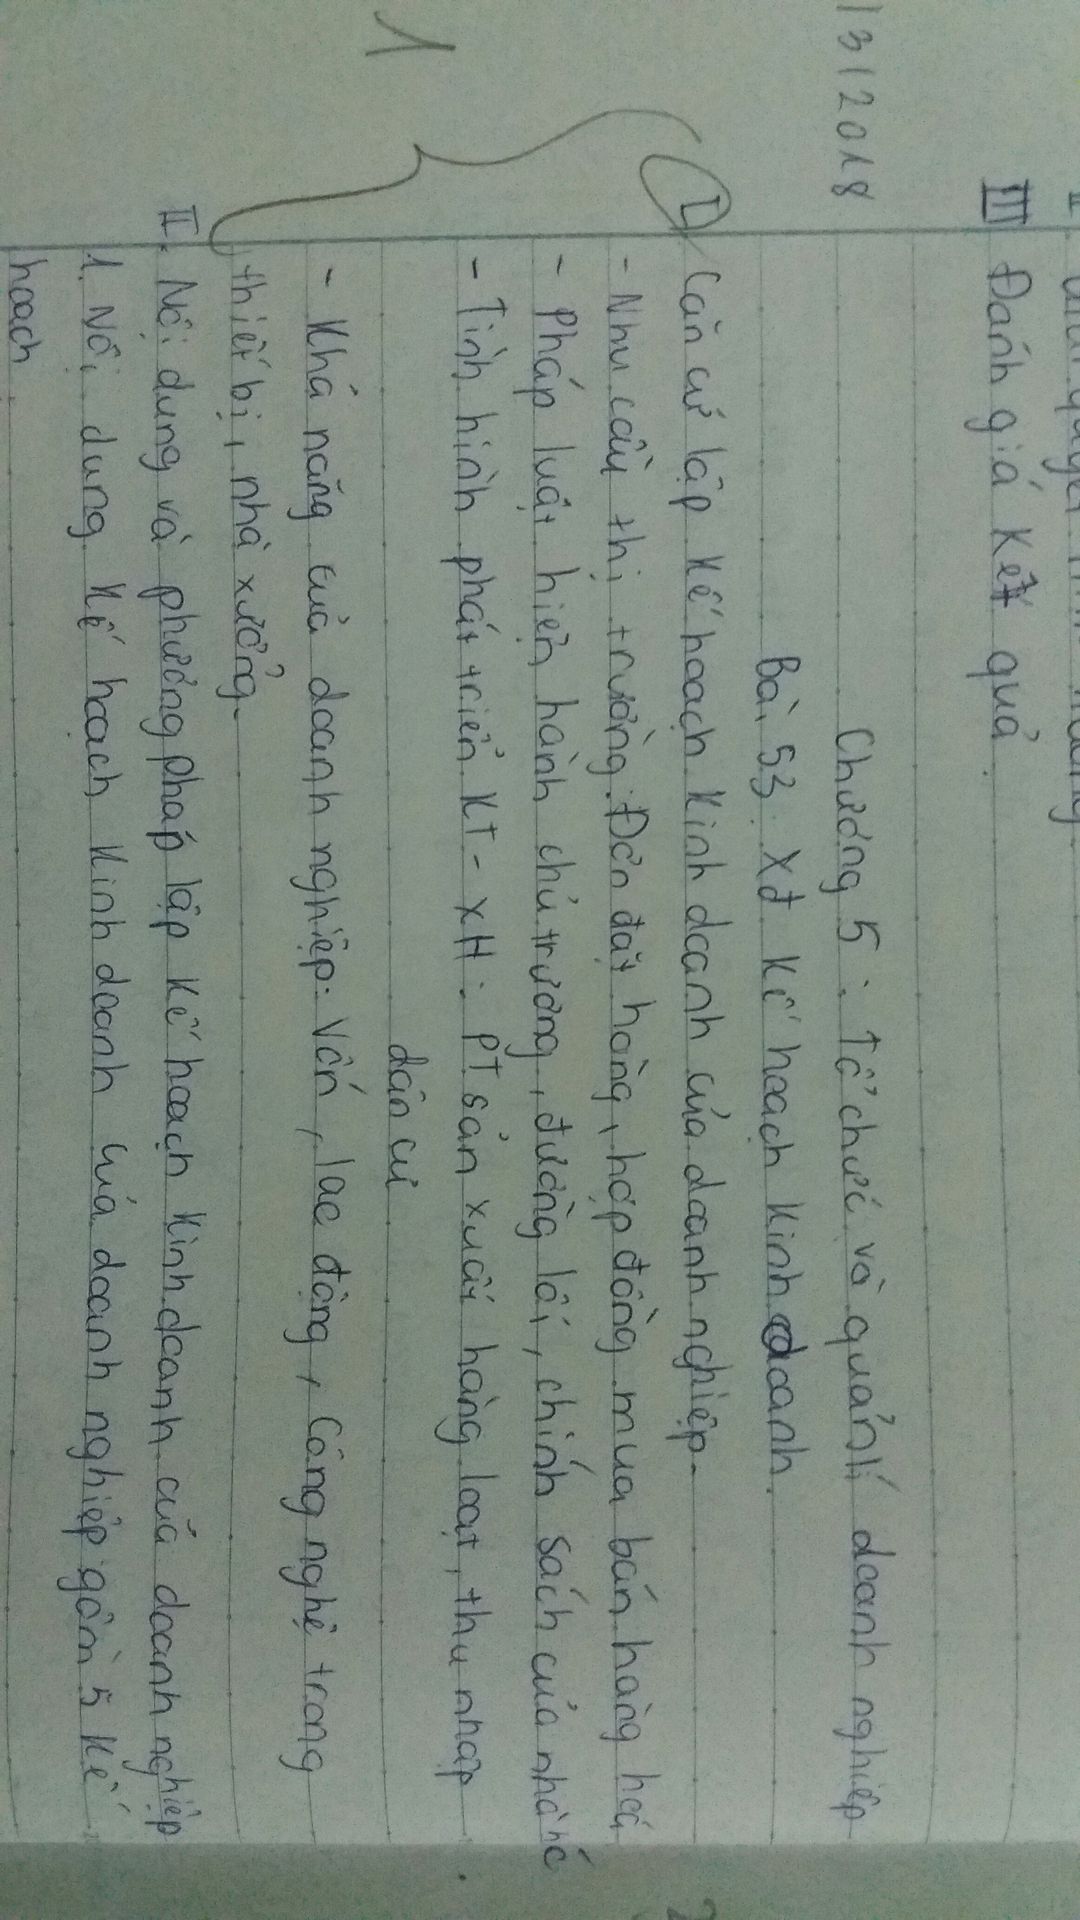 III Đánh giá kết quả.
13/2018
Chương 5: Tổ chức và quản lí doanh nghiệp
Bài 53: XĐ kế hoạch kinh doanh.
I Căn cứ lập kế hoạch kinh doanh của doanh nghiệp.
- Nhu cầu thị trường: Đơn đặt hàng, hợp đồng mua bán hàng hoá
- Pháp luật hiện hành chủ trương, đường lối, chính sách của nhà nc
- Tình hình phát triển KT - XH: PT sản xuất hàng loạt, thu nhập
dân cư
- Khả năng của doanh nghiệp: Vốn, lao động, công nghệ trong
thiết bị, nhà xưởng.
1
II. Nội dung và phương pháp lập kế hoạch kinh doanh của doanh nghiệp
1. Nội dung kế hoạch kinh doanh của doanh nghiệp gồm 5 kế
hoạch